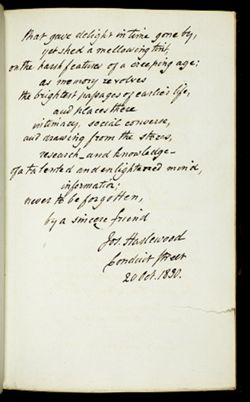 that gave delight in time gone by,
yet shed a mellowing tint,
on the harsh features of a creeping age;
as memory revolves
the brightest passages of earlier life,
and places there
intimacy, social converse,
and drawing from the stores,
research—and knowledge—
of a talented and enlightened mind,
information;
never to be forgotten,
by a sincere friend
Jos. Haslewood
Conduit Street
20 Oct. 1830.